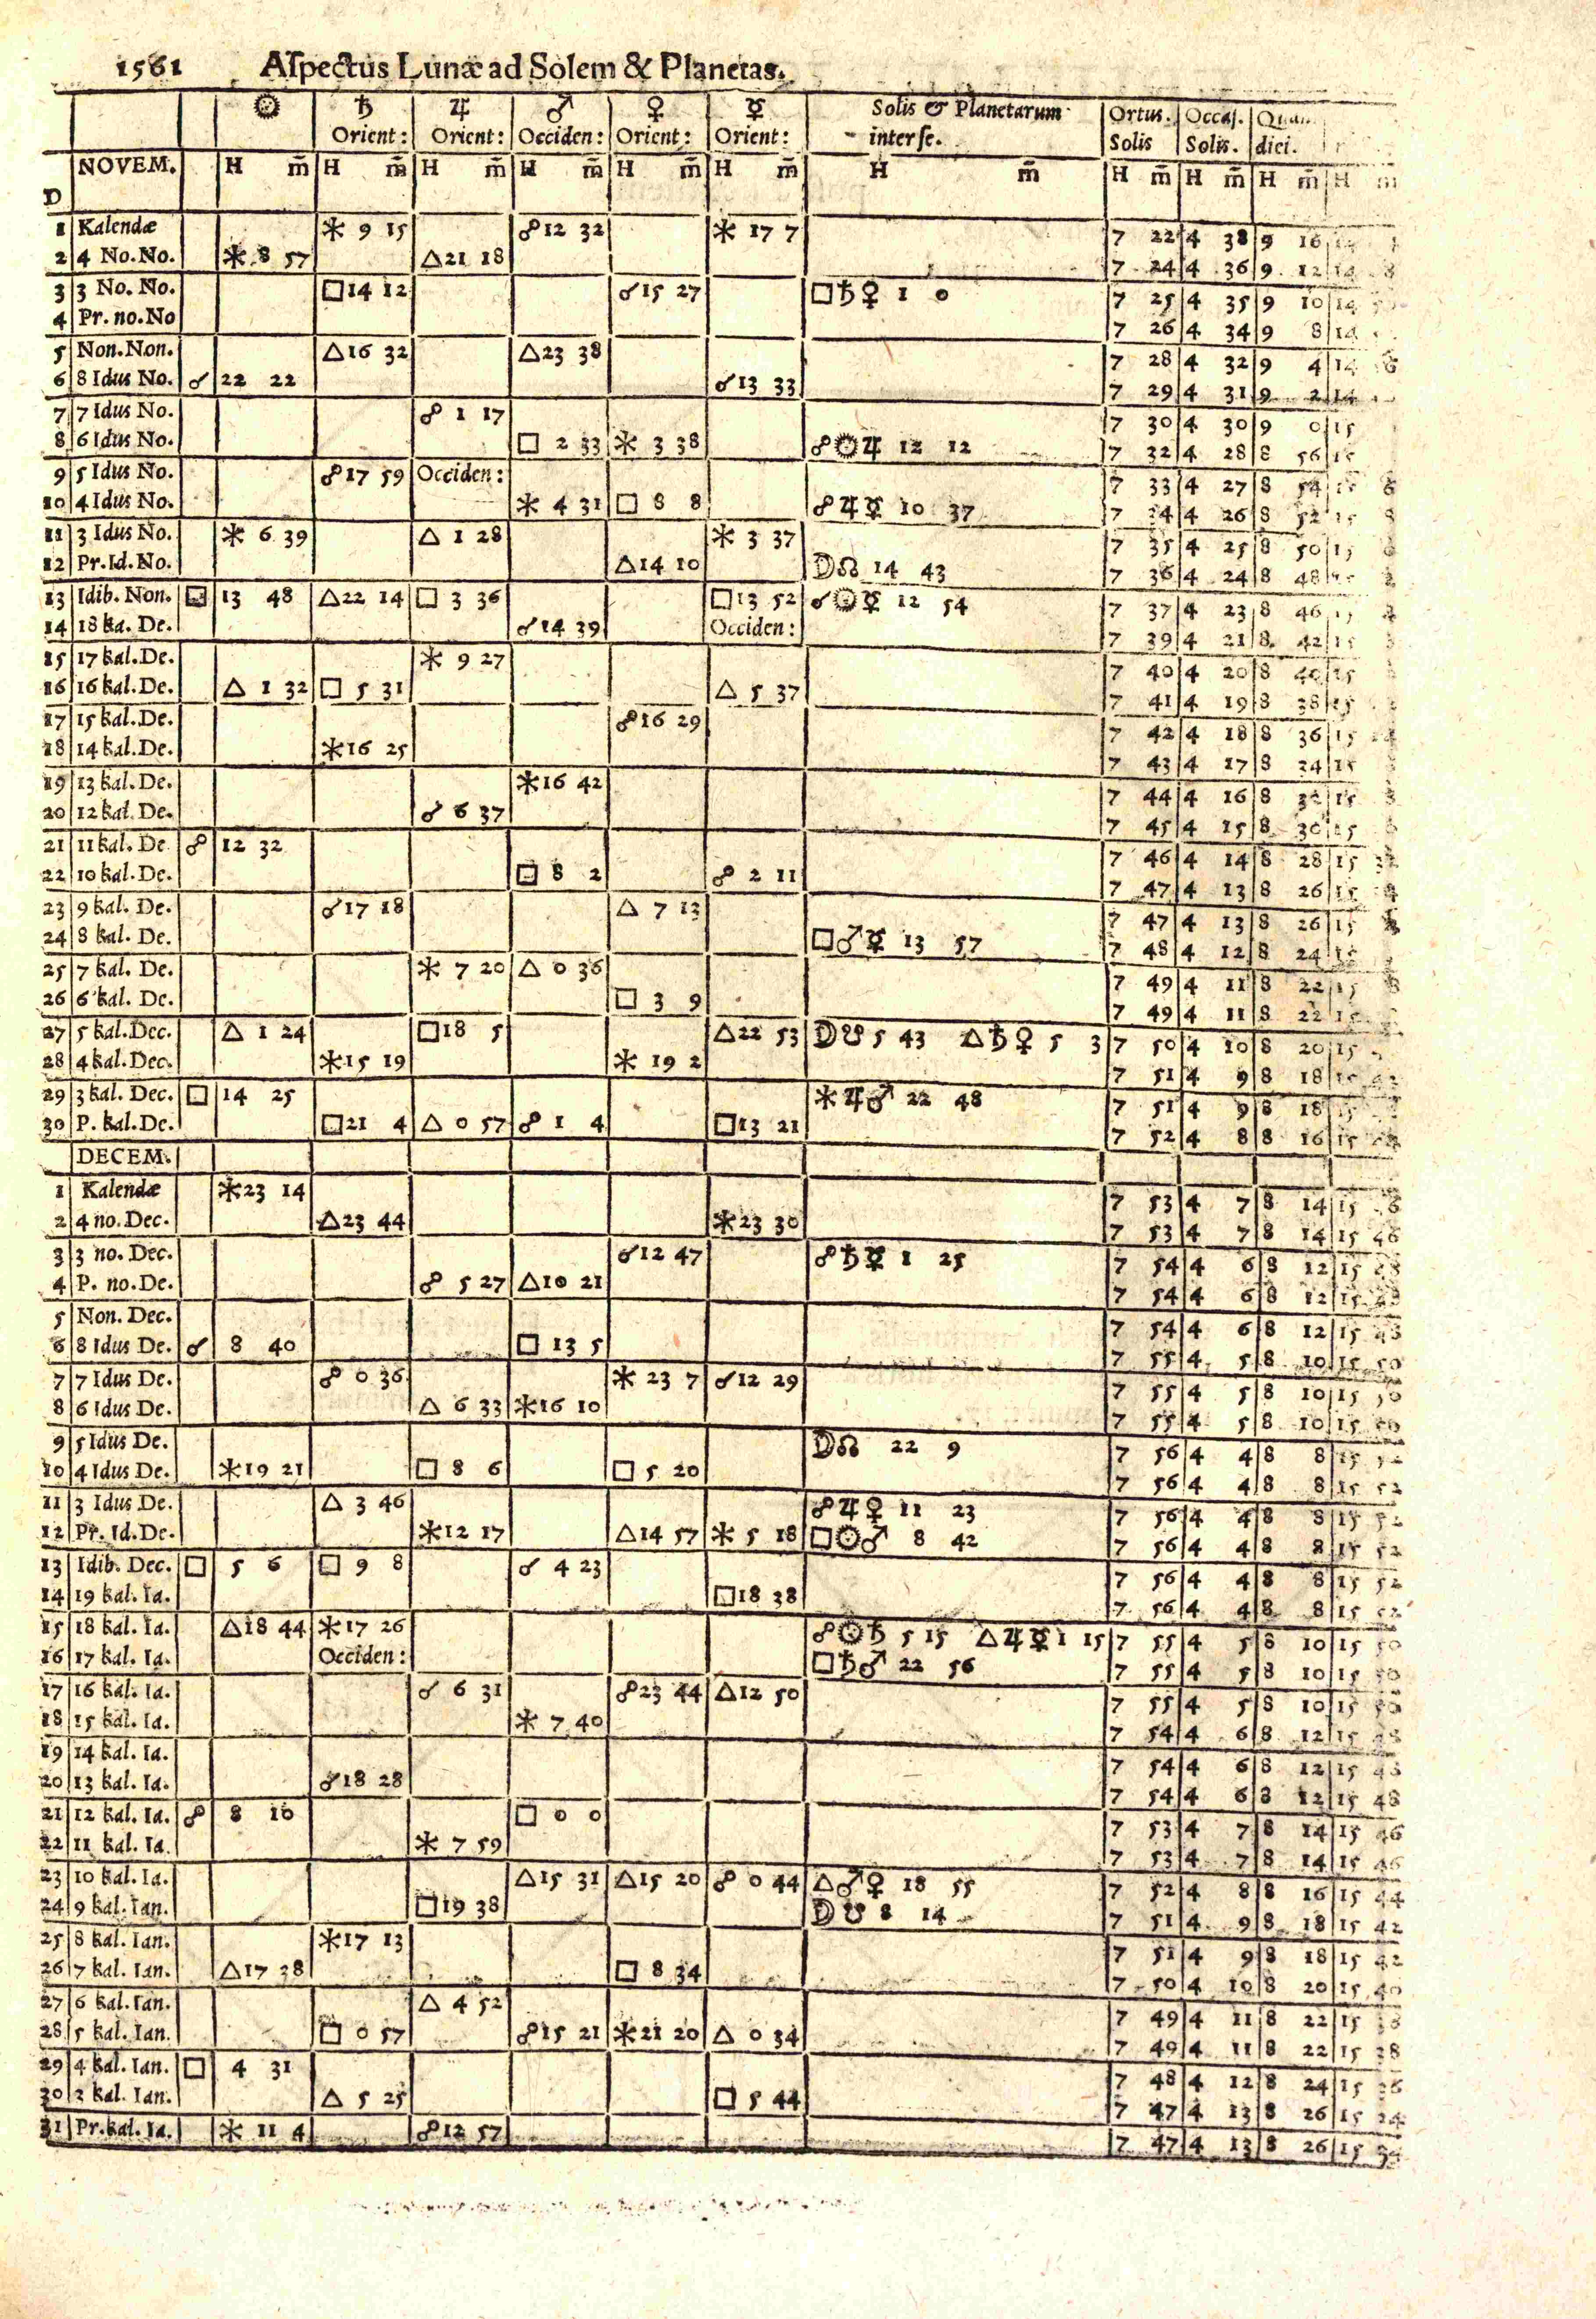 1561 Aſpectus Lunæ ad Solem & Planetas.
☉ ♄ ♃ ♂ ♀ ☿ Solis & Planetarum Ortus. Occaſ.
Orient: Orient: Occiden: Orient: Orient: inter ſe. Solis Solis. diei.
D NOVEM. H m̃ H m̃ H m̃ H m̃ H m̃ H m̃ H m̃ H m̃ H m̃ H m̃ H
1 Kalendæ ⚹ 9 15 ☍ 12 32 ⚹ 17 7 7 22 4 38 9 16
2 4 No.No. ⚹ 8 57 △ 21 18 7 24 4 36 9 12 14
3 3 No. No. □ 14 12 ☌ 15 27 □ ♄ ♀ 1 0 7 25 4 35 9 10 14
4 Pr. no.No 7 26 4 34 9 8 14
5 Non.Non. △ 16 32 △ 23 38 7 28 4 32 9 4 14
6 8 Idus No. ☌ 22 22 ☌ 13 33 7 29 4 31 9 2 14
7 7 Idus No. ☍ 1 17 7 30 4 30 9 0 15
8 6 Idus No. □ 2 33 ⚹ 3 38 ☍ ☉ ♃ 12 12 7 32 4 28 8 56 15
9 5 Idus No. ☍ 17 59 Occiden: 7 33 4 27 8 54 15
10 4 Idus No. ⚹ 4 31 □ 8 8 ☍ ♃ ☿ 10 37 7 34 4 26 8 52 15
11 3 Idus No. ⚹ 6 39 △ 1 28 ⚹ 3 37 7 35 4 25 8 50 15
12 Pr.Id.No. △ 14 10 ☽ ☊ 14 43 7 36 4 24 8 48
13 Idib. Non. □ 13 48 △ 22 14 □ 3 36 □ 13 52 ☌ ☉ ☿ 12 54 7 37 4 23 8 46 15
14 18 ka. De. ☌ 14 39 Occiden: 7 39 4 21 8 42 15
15 17 kal.De. ⚹ 9 27 7 40 4 20 8 40 15
16 16 kal.De. △ 1 32 □ 5 31 △ 5 37 7 41 4 19 8 38 15
17 15 kal.De. ☍ 16 29 7 42 4 18 8 36 15
18 14 kal.De. ⚹ 16 25 7 43 4 17 8 34 15
19 13 kal.De. ⚹ 16 42 7 44 4 16 8 32 15
20 12 kal. De. ☌ 6 37 7 45 4 15 8 30 15
21 11 kal. De ☍ 12 32 7 46 4 14 8 28 15 32
22 10 kal.De. □ 8 2 ☍ 2 11 7 47 4 13 8 26 15
23 9 kal. De. ☌ 17 18 △ 7 13 7 47 4 13 8 26 15
24 8 kal. De. □ ♂ ☿ 13 57 7 48 4 12 8 24 15
25 7 kal. De. ⚹ 7 20 △ 0 36 7 49 4 11 8 22 15
26 6 kal. De. □ 3 9 7 49 4 11 8 22 15
27 5 kal.Dec. △ 1 24 □ 18 5 △ 22 53 ☽ ☋ 5 43 △ ♄ ♀ 5 3 7 50 4 10 8 20 15
28 4 kal.Dec. ⚹ 15 19 ⚹ 19 2 7 51 4 9 8 18 15 42
29 3 kal. Dec. □ 14 25 ⚹ ♃ ♂ 22 48 7 51 4 9 8 18 15
30 P. kal.De. □ 21 4 △ 0 57 ☍ 1 4 □ 13 21 7 52 4 8 8 16 15
DECEM.
1 Kalendæ ⚹ 23 14 7 53 4 7 8 14 15
2 4 no.Dec. △ 23 44 ⚹ 23 30 7 53 4 7 8 14 15 46
3 3 no. Dec. ☌ 12 47 ☍ ♄ ☿ 1 25 7 54 4 6 8 12 15 48
4 P. no.De. ☍ 5 27 △ 10 21 7 54 4 6 8 12 15 48
5 Non. Dec. 7 54 4 6 8 12 15 48
6 8 Idus De. ☌ 8 40 □ 13 5 7 55 4 5 8 10 15 50
7 7 Idus De. ☍ 0 36 ⚹ 23 7 ☌ 12 29 7 55 4 5 8 10 15 50
8 6 Idus De. △ 6 33 ⚹ 16 10 7 55 4 5 8 10 15 50
9 5 Idus De. ☽ ☊ 22 9 7 56 4 4 8 8 15 52
10 4 Idus De. ⚹ 19 21 □ 8 6 □ 5 20 7 56 4 4 8 8 15 52
11 3 Idus De. △ 3 46 ☍ ♃ ♀ 11 23 7 56 4 4 8 8 15 52
12 Pr. Id.De. ⚹ 12 17 △ 14 57 ⚹ 5 18 □ ☉ ♂ 8 42 7 56 4 4 8 8 15 52
13 Idib. Dec. □ 5 6 □ 9 8 ☌ 4 23 7 56 4 4 8 8 15 52
14 19 kal. Ia. □ 18 38 7 56 4 4 8 8 15 52
15 18 kal. Ia. △ 18 44 ⚹ 17 26 ☍ ☉ ♄ 5 15 △ ♃ ☿ 1 15 7 55 4 5 8 10 15 50
16 17 kal. Ia. Occiden: □ ♄ ♂ 22 56 7 55 4 5 8 10 15 50
17 16 kal. Ia. ☌ 6 31 ☍ 23 44 △ 12 50 7 55 4 5 8 10 15 50
18 15 kal. Ia. ⚹ 7 40 7 54 4 6 8 12 15 48
19 14 kal. Ia. 7 54 4 6 8 12 15 48
20 13 kal. Ia. ☌ 18 28 7 54 4 6 8 12 15 48
21 12 kal. Ia. ☍ 8 10 □ 0 0 7 53 4 7 8 14 15 46
22 11 kal. Ia. ⚹ 7 59 7 53 4 7 8 14 15 46
23 10 kal. Ia. △ 15 31 △ 15 20 ☍ 0 44 △ ♂ ♀ 18 55 7 52 4 8 8 16 15 44
24 9 kal. Ian. □ 19 38 ☽ ☋ 8 14 7 51 4 9 8 18 15 42
25 8 kal. Ian. ⚹ 17 13 7 51 4 9 8 18 15 42
26 7 kal. Ian. △ 17 38 □ 8 34 7 50 4 10 8 20 15 40
27 6 kal. Ian. △ 4 52 7 49 4 11 8 22 15 38
28 5 kal. Ian. □ 0 57 ☍ 15 21 ⚹ 21 20 △ 0 34 7 49 4 11 8 22 15 38
29 4 kal. Ian. □ 4 31 7 48 4 12 8 24 15 36
30 3 kal. Ian. △ 5 25 □ 5 44 7 47 4 13 8 26 15 34
31 Pr.kal. Ia. ⚹ 11 4 ☍ 12 57 7 47 4 13 8 26 15 34